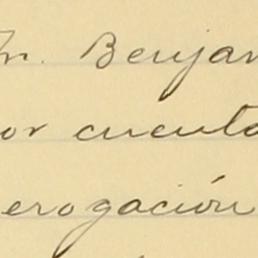 m. Benjam
or cuenta
erogación